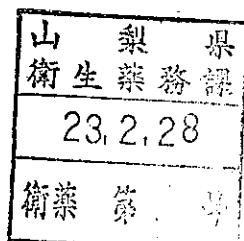 山梨県
衛生薬務課
23.2.28
衛薬 第 号